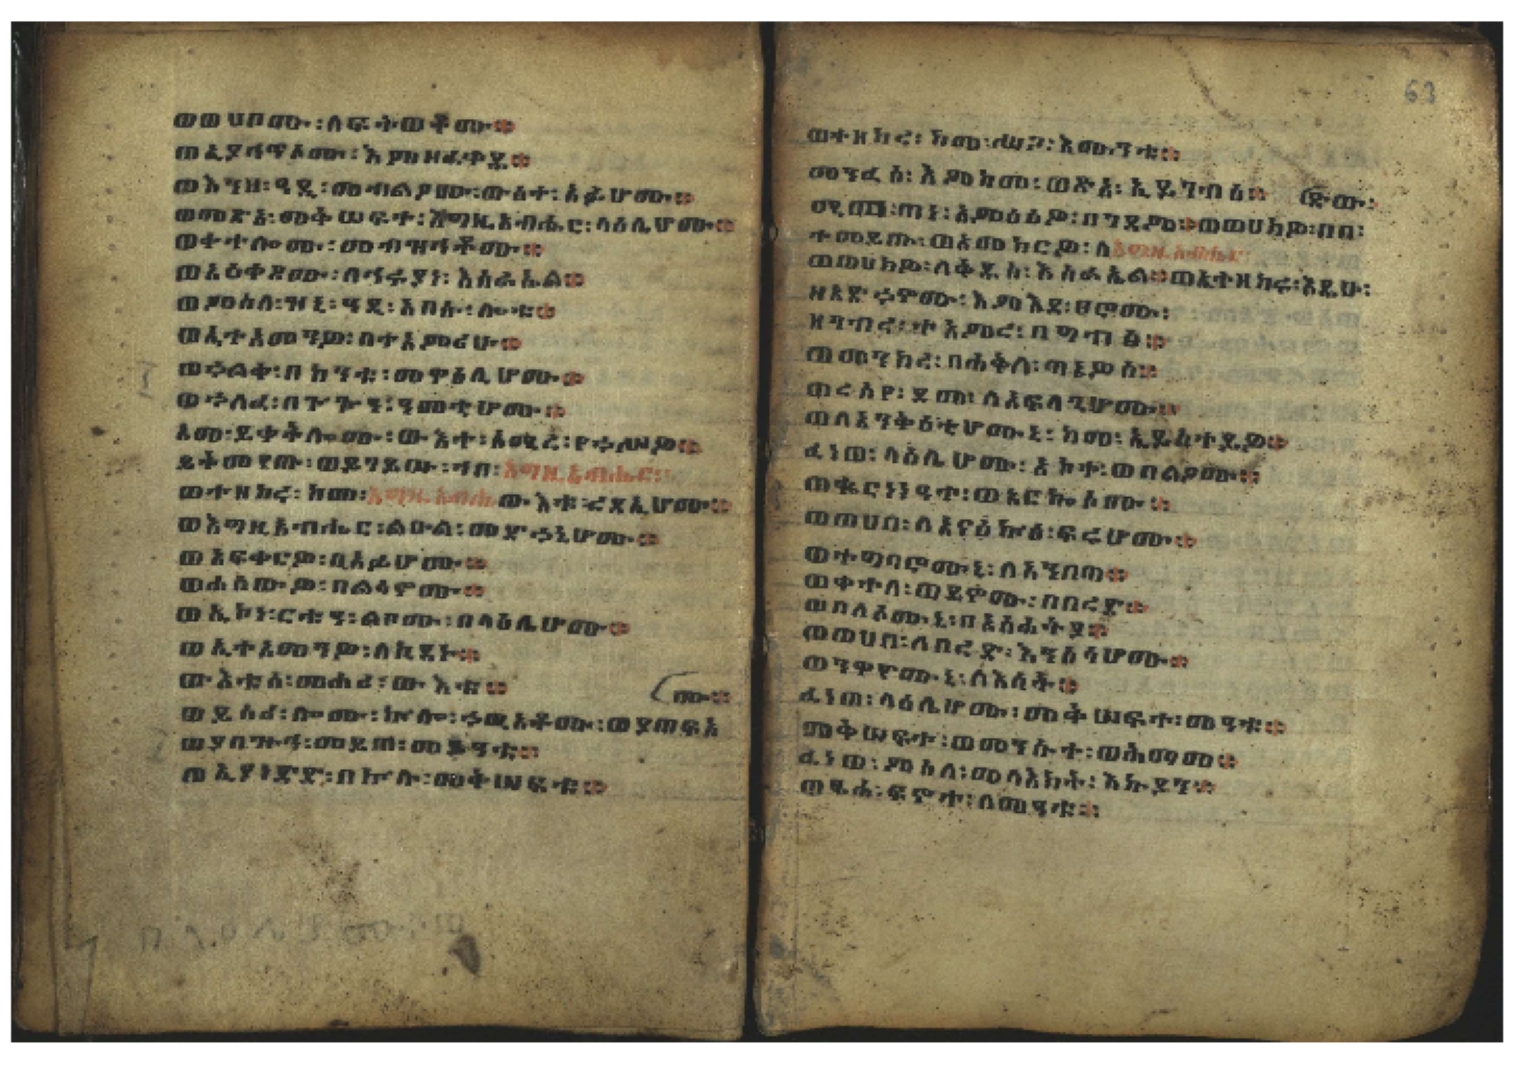 ወወሀቦሙ፡ለፍትወቶሙ።
ወኢያኅጥኦሙ፡እምዘፈቀዱ።
ወእንዘ፡ዓዲ፡መብልዖሙ፡ውስተ፡አፉሆሙ።
ወመጽአ፡መቅሠፍተ፡እግዚአብሔር፡ላዕሌሆሙ።
ወቀተሎሙ፡መብዝኅቶሙ።
ወአዕቀጾሙ፡ለኅሩያነ፡እስራኤል።
ወምስለ፡ዝኒ፡ዓዲ፡አበሱ፡ሎቱ።
ወኢተአመንዎ፡በተአምሪሁ።
ወኀልቀ፡በከንቱ፡መዋዕሊሆሙ።
ወኀለፈ፡በጕጕዓ፡ዓመቲሆሙ።
አመ፡ይቀትሎሙ፡ውእተ፡አሚረ፡የኀሥሥዎ።
ይትመየጡ፡ወይገይሡ፡ኀበ፡እግዚአብሔር።
ወተዘከሩ፡ከመ፡እግዚአብሔ ውእቱ፡ረዳኢሆሙ።
ወእግዚአብሔር፡ልዑል፡መድኀኒሆሙ።
ወአፍቀርዎ፡በአፉሆሙ።
ወሐሰውዎ፡በልሳኖሙ።
ወኢኮነ፡ርቱዓ፡ልቦሙ፡በላዕሌሆሙ።
ወኢተአመንዎ፡በኪዳኑ።
ውእቱሰ፡መሐሪ፡ውእቱ።
ወይሰሪ፡ሎሙ፡ኵሎ፡ኀጢአቶሙ፡ወያጠፍአ
ሙ።
ወያበዝኅ፡መይጠ፡መዓቱ።
ወኢያነድድ፡በኵሉ፡መቅሠፍቱ።
63
ወተዘከረ፡ከመ፡ሥጋ፡እሙንቱ።
መንፈስ፡እምከመ፡ወጽአ፡ኢይገብእ።
ተመይጡ፡ወአመከርዎ፡ለእግዚአብሔር፡
ወወሀክዎ፡ለቅዱሰ፡እስራኤል።ወኢተዘከሩ፡እዴሁ፡
ዘአድኀኖሙ፡እምእደ፡ፀሮሙ፡
ዘገብረ፡ተአምረ፡በግብፅ።
ወመንክረ፡በሐቅለ፡ጣኔዎስ።
ወረሰየ፡ደመ፡ለአፍላጊሆሙ።
ወለአንቅዕቲሆሙኒ፡ከመ፡ኢይስተይዎ።
ፈነወ፡ላዕሌሆሙ፡አከተ፡ወበልዖሙ።
ወቈርነነዓተ፡ወአርኰሰሙ።
ወወሀበ፡ለአናዕኵዕ፡ፍሬሆሙ።
ወተግባሮሙኒ፡ለአንበጣ።
ወቀተለ፡ወይኖሙ፡በበረድ።
ወበለሶሙኒ፡በአስሐትያ።
ወወሀበ፡ለበረድ፡እንስሳሆሙ።
ወንዋዮሙኒ፡ለእሳት።
ፈነወ፡ላዕሌሆሙ፡መቅሠፍተ፡መዓቱ።
መቅሠፍተ፡ወመንሱተ፡ወሕማመ።
ፈነወ፡ምስለ፡መላእክት፡እኩያን።
ወጼሐ፡ፍኖተ፡ለመዓቱ።